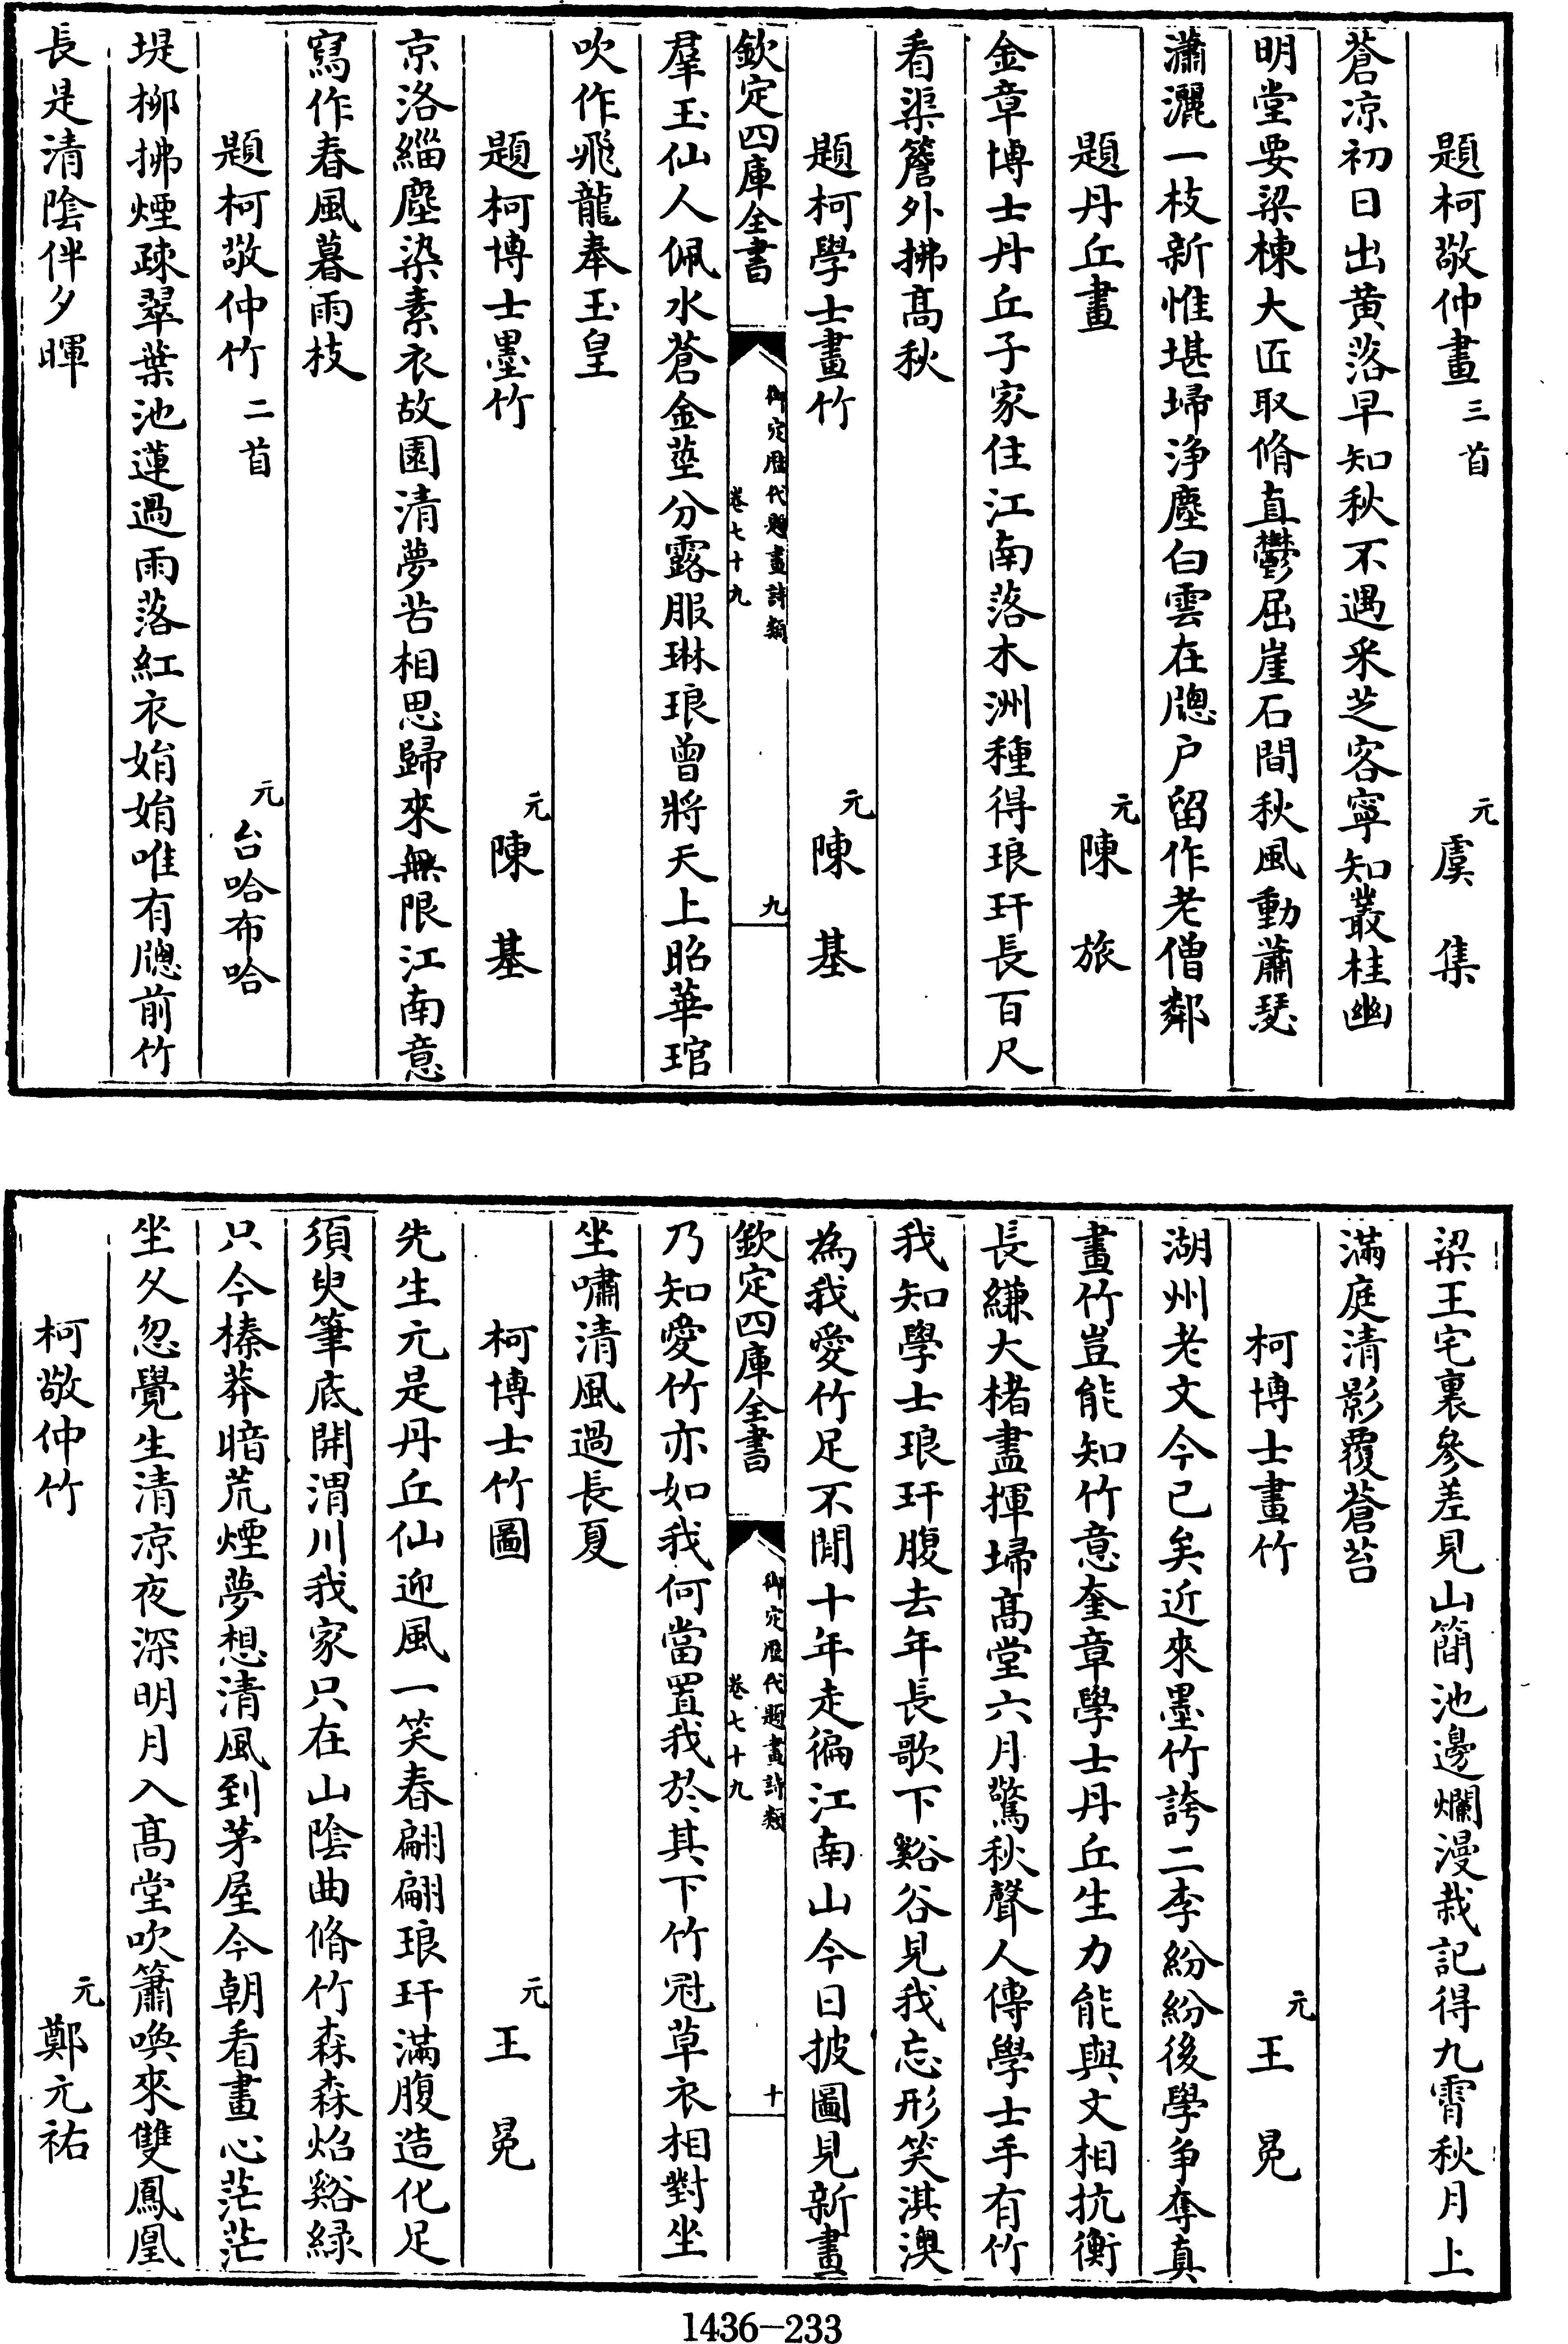 題柯敬仲畫三首 元虞集
蒼凉初日出黄落早知秋不遇采芝客寧知叢桂幽
明堂要梁棟大匠取脩直鬱屈崖石間秋風動蕭瑟
瀟灑一枝新惟堪埽浄塵白雲在牕户留作老僧鄰
題丹丘畫 元陳旅
金章博士丹丘子家住江南落木洲種得琅玕長百尺
看渠簷外拂髙秋
題柯學士畫竹 元陳基
欽定四庫全書 御定歴代題畫詩類 卷七十九 九
羣玉仙人佩水蒼金莖分露服琳琅曽將天上昭華琯
吹作飛龍奉玉皇
題柯博士墨竹 元陳基
京洛緇塵染素衣故園清夢苦相思歸來無限江南意
寫作春風暮雨枝
題柯敬仲竹二首 元台哈布哈
堤柳拂煙疎翠葉池蓮過雨落紅衣娟娟唯有牕前竹
長是清陰伴夕暉
梁王宅裏參差見山簡池邊爛漫栽記得九霄秋月上
滿庭清影覆蒼苔
柯博士畫竹 元王冕
湖州老文今已矣近來墨竹誇二李紛紛後學争奪真
畫竹豈能知竹意奎章學士丹丘生力能與文相抗衡
長縑大楮盡揮埽髙堂六月驚秋聲人傳學士手有竹
我知學士琅玕腹去年長歌下谿谷見我忘形笑淇澳
為我愛竹足不閒十年走徧江南山今日披圖見新畫
欽定四庫全書 御定歴代題畫詩類 卷七十九 十
乃知愛竹亦如我何當置我於其下竹冠草衣相對坐
坐嘯清風過長夏
柯博士竹圖 元王冕
先生元是丹丘仙迎風一笑春翩翩琅玕滿腹造化足
須臾筆底開渭川我家只在山陰曲脩竹森森焰谿緑
只今榛莽暗荒煙夢想清風到茅屋今朝看畫心茫茫
坐久忽覺生清凉夜深明月入髙堂吹簫喚來雙鳳凰
柯敬仲竹 元鄭元祐
1436-233